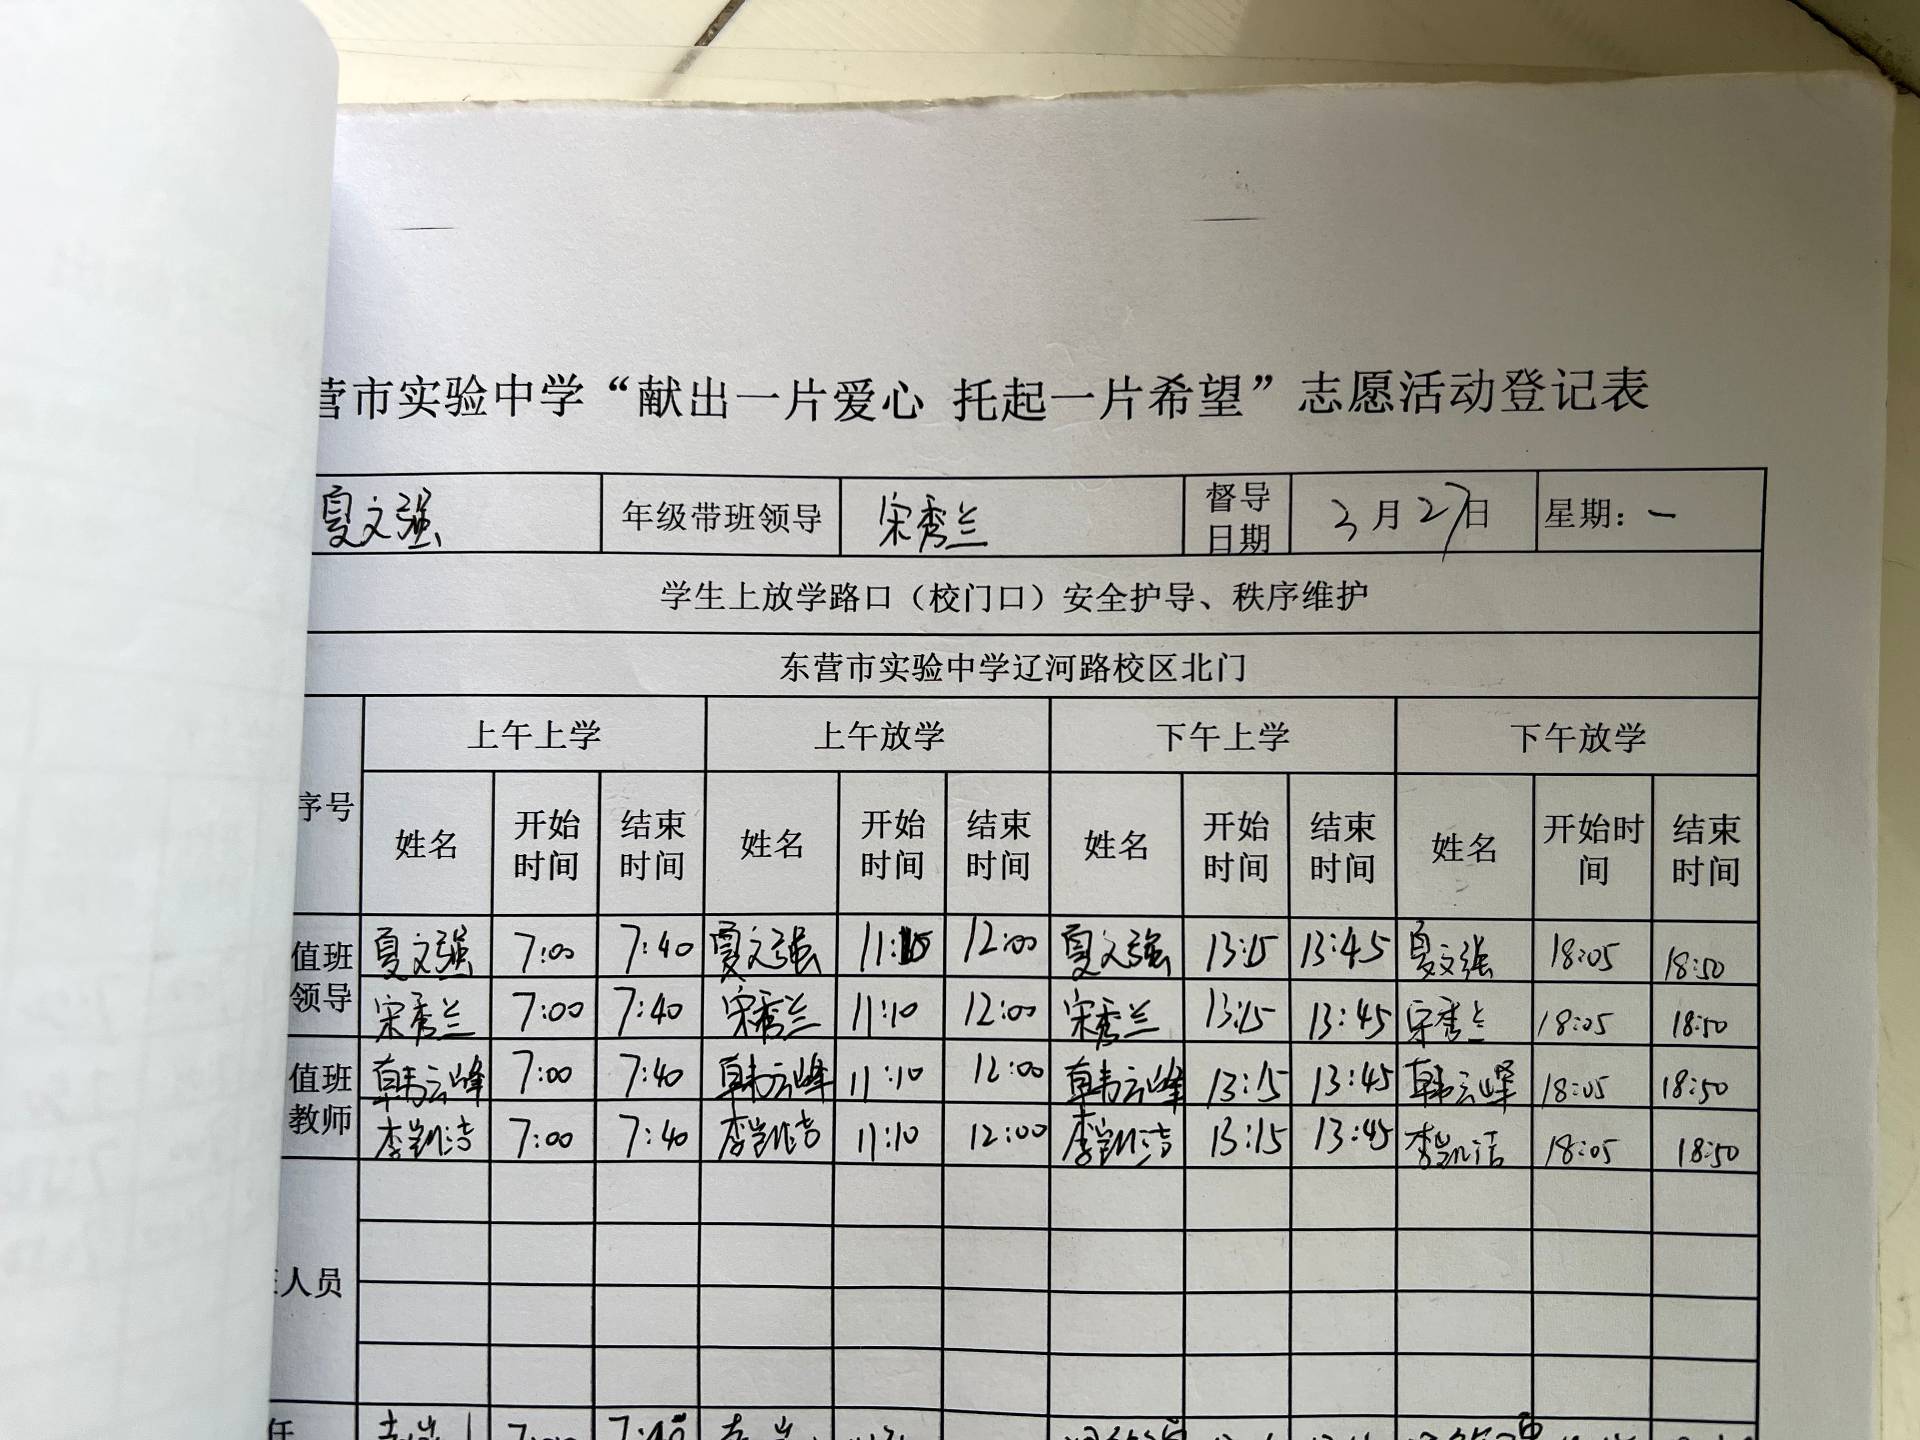 营市实验中学“献出一片爱心 托起一片希望”志愿活动登记表
夏文强 年级带班领导 宋秀兰 督导日期 3月27日 星期：一
学生上放学路口（校门口）安全护导、秩序维护
东营市实验中学辽河路校区北门
序号 上午上学 上午放学 下午上学 下午放学
姓名 开始时间 结束时间 姓名 开始时间 结束时间 姓名 开始时间 结束时间 姓名 开始时间 结束时间
值班领导 夏文强 7:00 7:40 夏文强 12:00 夏文强 13:15 13:45 夏文强 18:05 18:50
宋秀兰 7:00 7:40 宋秀兰 11:10 12:00 宋秀兰 13:15 13:45 宋秀兰 18:05 18:50
值班教师 韩云峰 7:00 7:40 韩云峰 11:10 12:00 韩云峰 13:15 13:45 韩云峰 18:05 18:50
李凯洁 7:00 7:40 李凯洁 11:10 12:00 李凯洁 13:15 13:45 李凯洁 18:05 18:50
人员